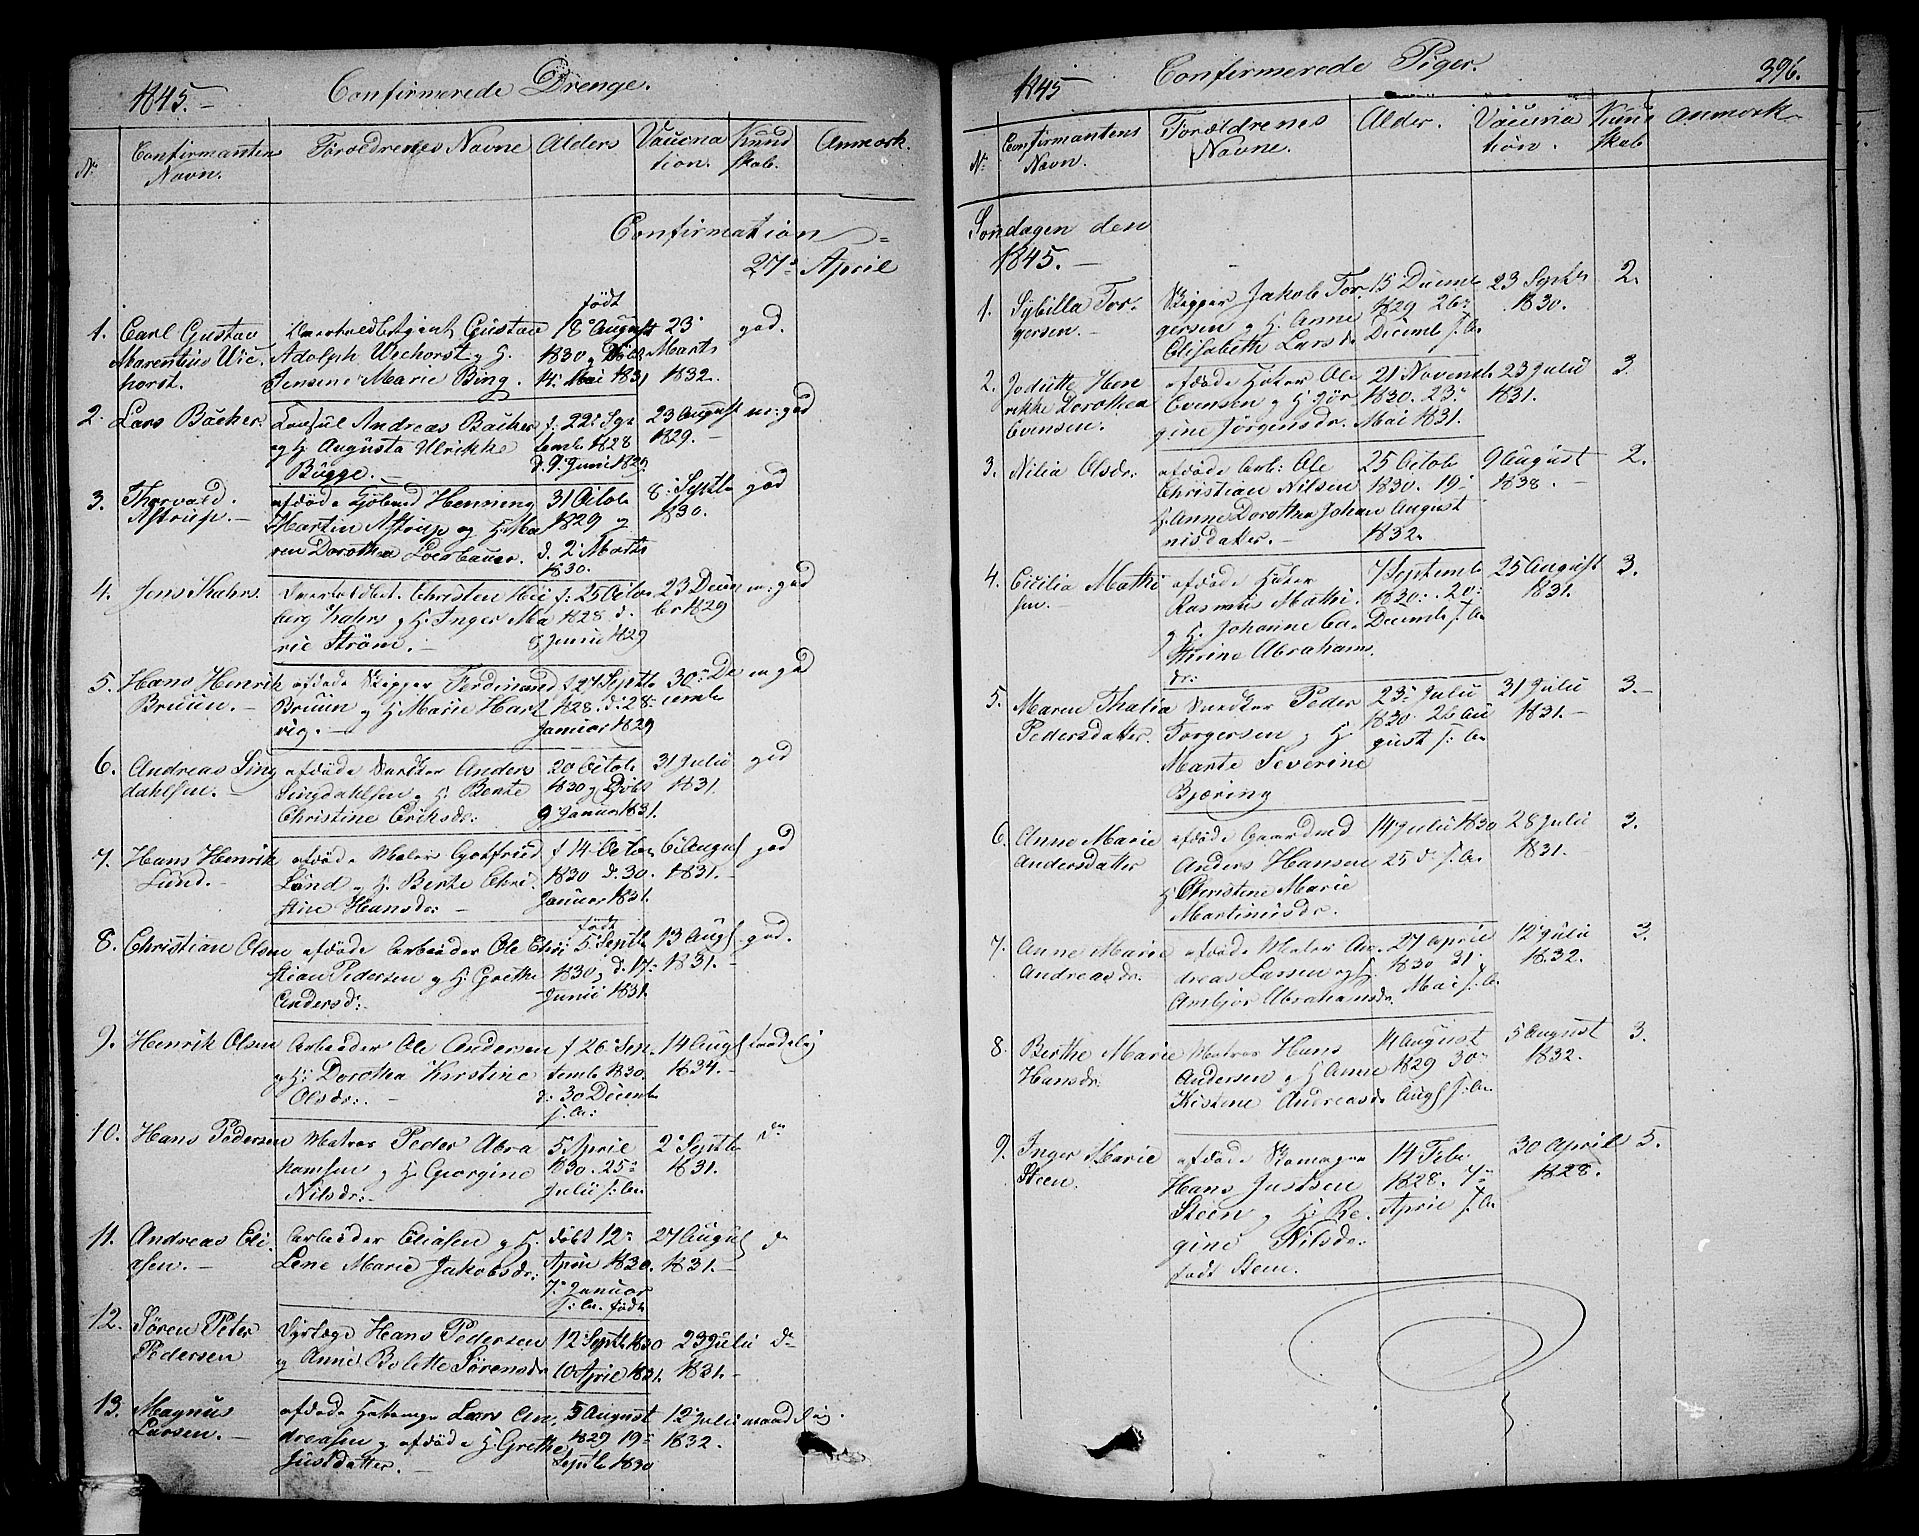 1845.—
Confirmerede Drenge.
No
Confirmanten
Navn.
Foroldrenes Navne
Alders
Vaccina
tion.
Kund
skab.
Anmærk.
Confirmation
27de April
1. Carl Gustav
Marentius Wie
horst.
Gustav
Adolph Wiehorst og H.
Jensene Marie Bing.
født
18de August
1830 og Döbt
14. Mai 1831
23de
Marts
1832.
god.
2. Lars Backer.
Consul Andreas Backer
og H. Augusta Ulrikke
Bugge.—
f. 22de Sep
temb. 1828
d. 9de Juni 1829
23 August
1829.—
m: god
3. Thorvald
Astrup.—
afdöde Henning
Martin Astrup og H. Ma
ren Dorothea
31 Octob
1829 og
d. 2de Marts
1830.
8de Septb
1830.
god
4. Jens Kahrs.
Christen
berg Kahrs og H. Inger Ma
rie Ström.—
f: 25 Octo
1828. d.
8 Junii 1829
23 Decem
ber 1829
m: god
5. Hans Henrik
Bruun.—
afdøde Skipper Ferdinand
Bruun og H. Marie Hart
vig.—
f 27 Septb
1828. d. 28
Januar 1829
30de De
cemb
m god
6. Andreas Ling
dahlsen.—
afdöde Anders
Lingdahlsen og H. Berte
Christine Eriksdr:
20 Octob
1830 og Döbt
9de Januar 1831.
31 Julii
1831.
god
7. Hans Henrik
Lund.—
afdöde Maler Gotfried
Lund og H. Berte Chri
stine Hansdr:—
f 14 Octo
1830 d. 30.
Januar 1831.
6 August
1831.—
god
8. Christian Olsen
afdöde Arbeider Ole Chri
stian Pedersen og H. Grethe
Andersdr:
født
5 Septb
1830 og d. 17de
Junii 1831.
13 Augs
1831.—
god.
9. Henrik Olsen
Arbeider Ole Andersen
og H: Dorothea Kirstine
Olsdr:.—
f 26de Sep
temb 1830.
d: 30 Decemb
s. A:
14 Augs
1834.—
10. Hans Pedersen
Matros Peder Abra
hamsen og H. Georgine
Nilsdr:—
5 April
1830. 25de
Julii s: A.
2de Septb
1831.
11. Andreas Eli
asen.—
Arbeider Eliasen og H.
Lene Marie Jakobsdr:
döbt 12te
April 1830.
7de Januar
s: A. födt
27 August
1831.—
do
12. Søren Peter
Pedersen
Hans Pedersen
og Anne Bolette Sørensdr
12 Septb 1830
10 April 1831.
23 Julii
1831.—
do
13. Magnus
Larsen.—
afdöde Lars An
dreasen og afdöde H. Grethe
Justdatter.—
5 August
1829 19de
Septb 1830
12te Julii
1832.—
maadelig.
1845
Confirmerede Piger.
396.
No
Confirmantens
Navn.
Forældrenes
Navne.
Alder.
Vaccina
tion.
Kund
skab
Anmærk
Søndagen den
1845.—
1. Sybilla Tor
gersen.—
Skipper Jakob Tor
gersen og H. Anne
Elisabeth Larsdr
15 Decemb
1829 26de
Decemb s. A.
23 Septbr
1830.
2.
2. Jodutte Hen
rikke Dorothea
Evensen.
afdöde Høker Ole
Evensen og H. Jör
gine Jörgensdr.
21 Novemb
1830. 23de
Mai 1831.
23 Julii
1831.
3.
3. Nilia Olsdr:
afdöde Arb: Ole
Christian Nilsen
H. Anne Dorothea Johan
nisdatter.—
25 Octob
1830. 19de
August
1832.
9 August
1838.—
2.
4. Cicilia Mathi
sen.—
afdöde Høker
Rasmus Mathi.
og H. Johanne Ca
thrine Abrahams
dr:
7 Septemb
1830. 20de
Decemb s. A.
25 August
1831.
3.
5. Maren Thalia
Pedersdatter.
Peder
Torgersen og H
Marte Severine
Bjæring
23de Julii
1830. 26 Au
gust s: A.
31 Julii
1831.—
3.—
6. Anne Marie
Andersdatter
afdöde Gaardmd
Anders Hansen
H Christene Marie
Martinusdr.
14 Julii 1830
25 do s. A.
28 Julii
1831.—
3.
7. Anne Marie
Andreasdr.
afdöde Maler An
dreas Larsen og H.
Ambjör Abrahamsdr.
27 April
1830 31.
Mai s. A.
12 Julii
1832.
3.
8. Berthe Marie
Hansdr.
Matros Hans
Andersen og H Anne
Kistene Andreasdr
14 August
1829 30te
Augs s: A.
5 August
1832.
3.
9. Inger Marie
Steen.
afdöde Skomager
Hans Justsen
Steen og H: Re
gine Nilsdr.
født Steen.
14 Feb.
1828. 7de
April s. A
30 April
1828.
5.